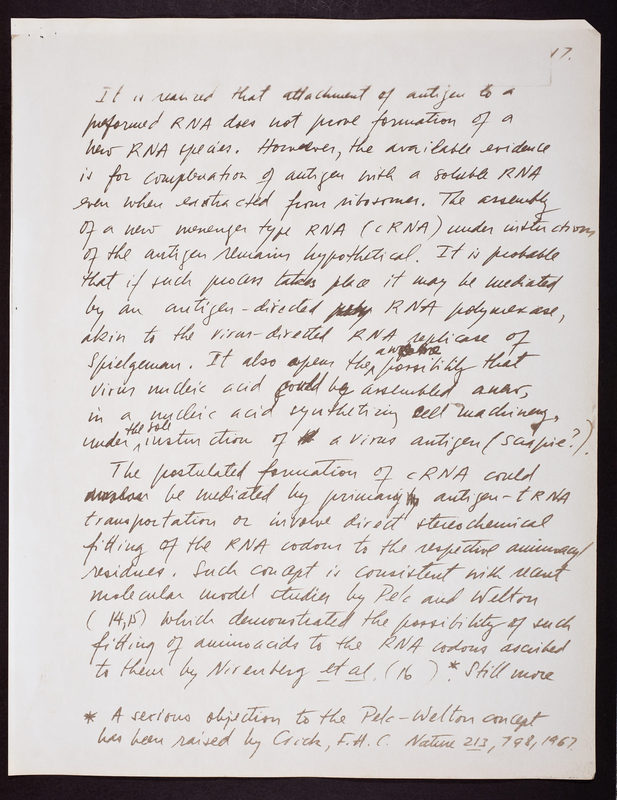 17.
It is realized that attachment of antigen to a
preformed RNA does not prove formation of a
new RNA species. However, the available evidence
is for complexation of antigen with a soluble RNA
even when extracted from ribosomes. The assembly
of a new messenger type RNA (cRNA) under instructions
of the antigen remains hypothetical. It is probable
that if such process takes place it may be mediated
by an antigen-directed RNA polymerase,
akin to the virus-directed RNA replicase of
Spielgeman. It also opens the awesome possibility that
virus nucleic acid could be assembled anew,
in a nucleic acid synthetizing cell machinery,
under the sole instruction of a virus antigen (scrapie?).
The postulated formation of cRNA could
be mediated by primary antigen-tRNA
transportation or involve direct stereochemical
fitting of the RNA codons to the respective aminoacyl
residues. Such concept is consistent with recent
molecular model studies by Pelc and Welton
(14,15) which demonstrated the possibility of such
fitting of aminoacids to the RNA codons ascribed
to them by Nirenberg et al. (16 ) *. Still more
* A serious objection to the Pelc-Welton concept
has been raised by Crick, F.H.C. Nature 213, 798, 1967.